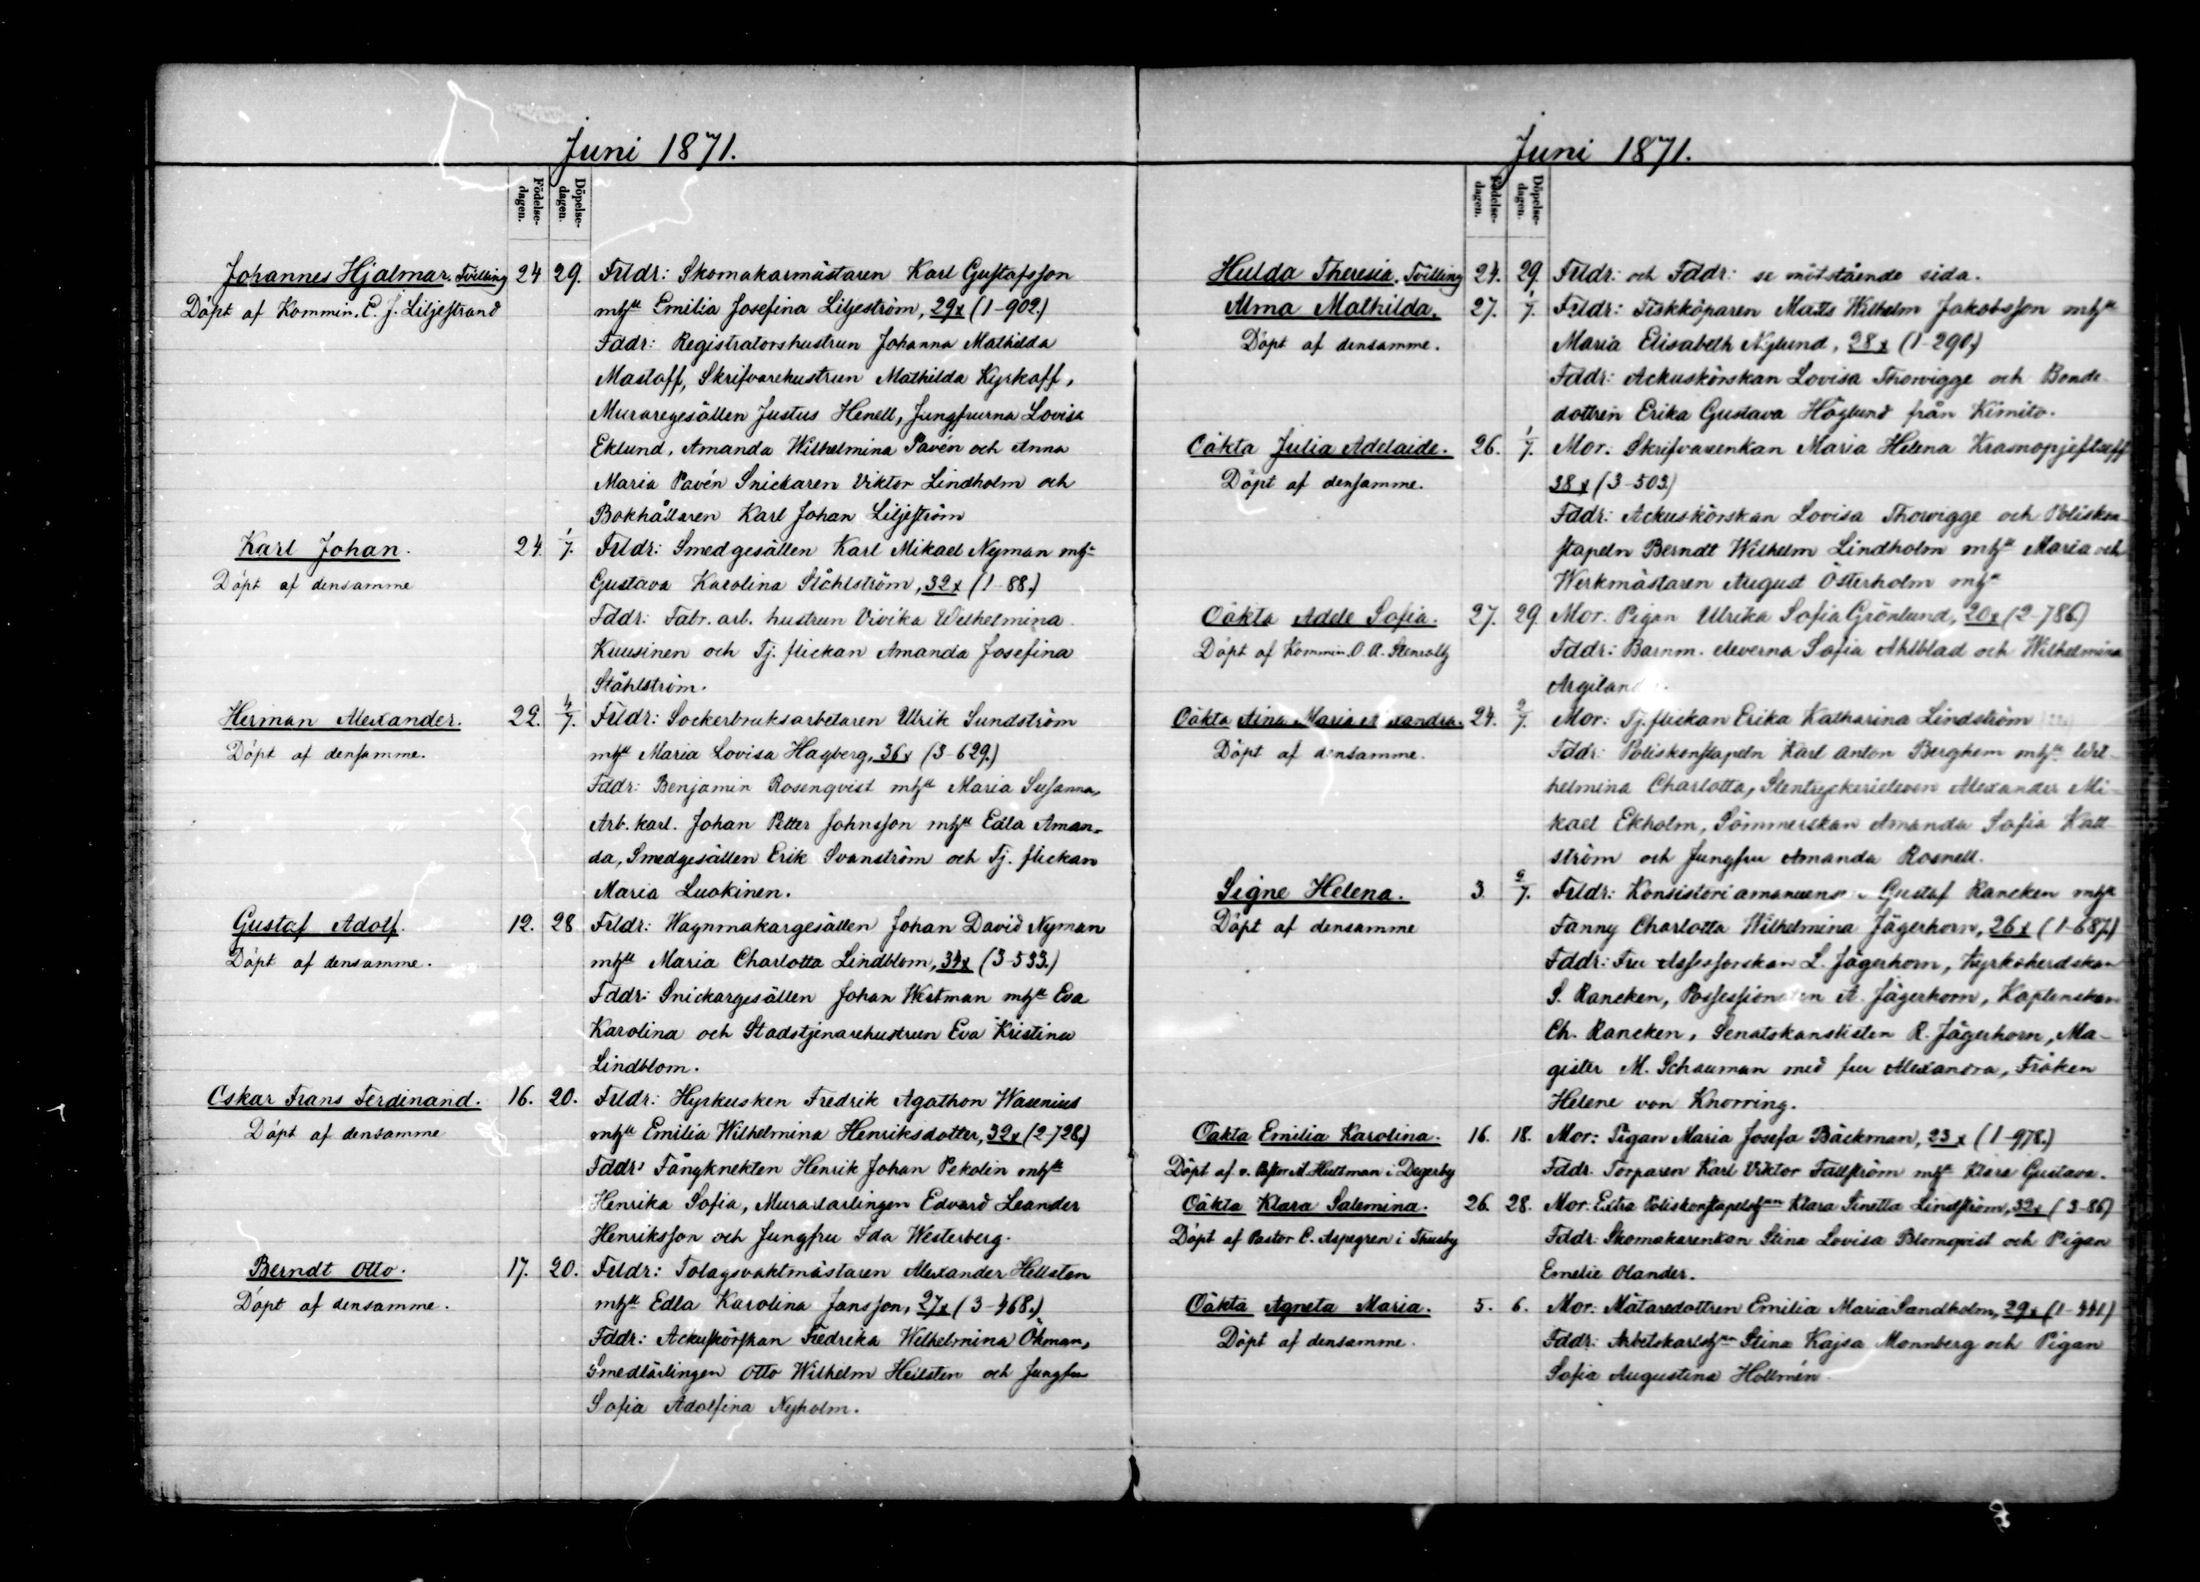 Juni 1871.
Födelse-dagen. Döpelse-dagen.
Johannes Hjalmar. Tvilling 24 29. Frldr: Skomakarmästaren Karl Gustafsson
Döpt af Kommin. C. J. Liljestrand mhu Emilia Josefina Liljeström, 29x (1-902.)
Fddr: Registratorshustrun Johanna Mathilda
Mastoff, Skrifvarehustrun Mathilda Kyrkoff,
Muraregesällen Justus Henell, Jungfrurna Lovisa
Eklund, Amanda Wilhelmina Pavén och Anna
Maria Pavén Snickaren Viktor Lindholm och
Bokhållaren Karl Johan Liljeström
Karl Johan. 24. 1/7. Frldr: Smedgesällen Karl Mikael Nyman mh
Döpt af densamme Gustava Karolina Ståhlström, 32x (1-88.)
Fddr: Fabr. arb. hustrun Vivika Wilhelmina
Kuusinen och Tj. flickan Amanda Josefina
Ståhlström.
Herman Alexander. 22. 4/7. Frldr: Sockerbruksarbetaren Ulrik Sundström
Döpt af densamme. mhu Maria Lovisa Hagberg, 36x (3-629.)
Fddr: Benjamin Rosenqvist mhu Maria Susanna,
Arb. karl. Johan Petter Johnsson mhu Edla Aman-
da, Smedgesällen Erik Svanström och Tj. flickan
Maria Luokinen.
Gustaf Adolf. 12. 28 Frldr: Wagnmakargesällen Johan David Nyman
Döpt af densamme. mhu Maria Charlotta Lindblom, 34x (3-533.)
Fddr: Snickargesällen Johan Westman mhu Eva
Karolina och Stadstjenarehustrun Eva Kristina
Lindblom.
Oskar Frans Ferdinand. 16. 20. Frldr: Hyrkusken Fredrik Agathon Wasenius
Döpt af densamme mhu Emilia Wilhelmina Henriksdotter, 32x (2-728.)
Fddr: Fångknekten Henrik Johan Pekolin mhu
Henrika Sofia, Murarlärlingen Edvard Leander
Henriksson och Jungfru Ida Westerberg.
Berndt Otto. 17. 20. Frldr: Tolagsvaktmästaren Alexander Hellsten
Döpt af densamme. mhu Edla Karolina Jansson, 27x (3-468.)
Fddr: Ackuskörskan Fredrika Wilhelmina Öhman,
Smedlärlingen Otto Wilhelm Hellsten och Jungfru
Sofia Adolfina Nyholm.
Juni 1871.
Födelse-dagen. Döpelse-dagen.
Hulda Theresia. Tvilling 24. 29. Frldr: och Fddr: se motstående sida.
Alma Mathilda. 27. 1/7. Frldr: Fiskköparen Matts Wilhelm Jakobsson mhu
Döpt af densamme. Maria Elisabeth Nylund, 28x (1-290.)
Fddr: Ackuskörskan Lovisa Thorvigge och Bonde-
dottren Erika Gustava Höglund från Kimito.
Oäkta Julia Adelaide. 26. 1/7. Mor: Skrifvarenkan Maria Helena
Döpt af densamme. 38x (3-503)
Fddr: Ackuskörskan Lovisa Thorvigge och Poliskon-
stapeln Berndt Wilhelm Lindholm mhu Maria och
Werkmästaren August Österholm mhu
Oäkta Adele Sofia. 27. 29 Mor: Pigan Ulrika Sofia Grönlund, 20x (2-786)
Döpt af Kommin. O. A. Fddr: Barnm. eleverna Sofia Ahlblad och Wilhelmina
Oäkta Aina Maria 24. 2/7. Mor: Tj. flickan Erika Katharina Lindström
Döpt af densamme. Fddr: Poliskonstapeln Karl Anton Berghem mhu Wil-
helmina Charlotta, Stentryckerieleven Alexander Mi-
kael Ekholm, Sömmerskan Amanda Sofia Käll-
ström och Jungfru Amanda Rosnell.
Signe Helena. 3. 7. Frldr: Gustaf Rancken mhu
Döpt af densamme Fanny Charlotta Wilhelmina Jägerhorn, 26x (1-687.)
Fddr: Fru Assessorskan L. Jägerhorn, Kyrkoherdskan
S. Rancken, A. Jägerhorn, Kaplenskan
Ch. Rancken, Senatskanslisten R. Jägerhorn, Ma-
gister M. Schauman med fru Alexandra, Fröken
Helene von Knorring.
Oäkta Emilia Karolina. 16. 18. Mor: Pigan Maria Josefa Bäckman, 23x (1-978.)
Döpt af v. Pastor A. Hultman i Degerby Fddr: Torparen Karl Viktor Fallström mhu Klara Gustava.
Oäkta Klara Salemina. 26. 28. Mor: Extra Klara Sinetta Lindström, 32x (3-86)
Döpt af Pastor C. Aspegren i Thusby Fddr: Skomakarenkan Stina Lovisa Blomqvist och Pigan
Emelie Olander.
Oäkta Agneta Maria. 5. 6. Mor: Mätaredottren Emilia Maria Sandholm, 29x (1-441)
Döpt af densamme. Fddr: Stina Kajsa Monnberg och Pigan
Sofia Augustina Hollmén